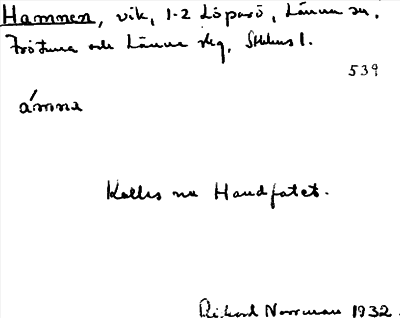 Hamnen, vik, 1-2 Löparö, Länna sn,
Frötuna och Länna slg, Sthlms l.
539
ámna
Kallas nu Handfatet.
Rikard Norrman 1932.